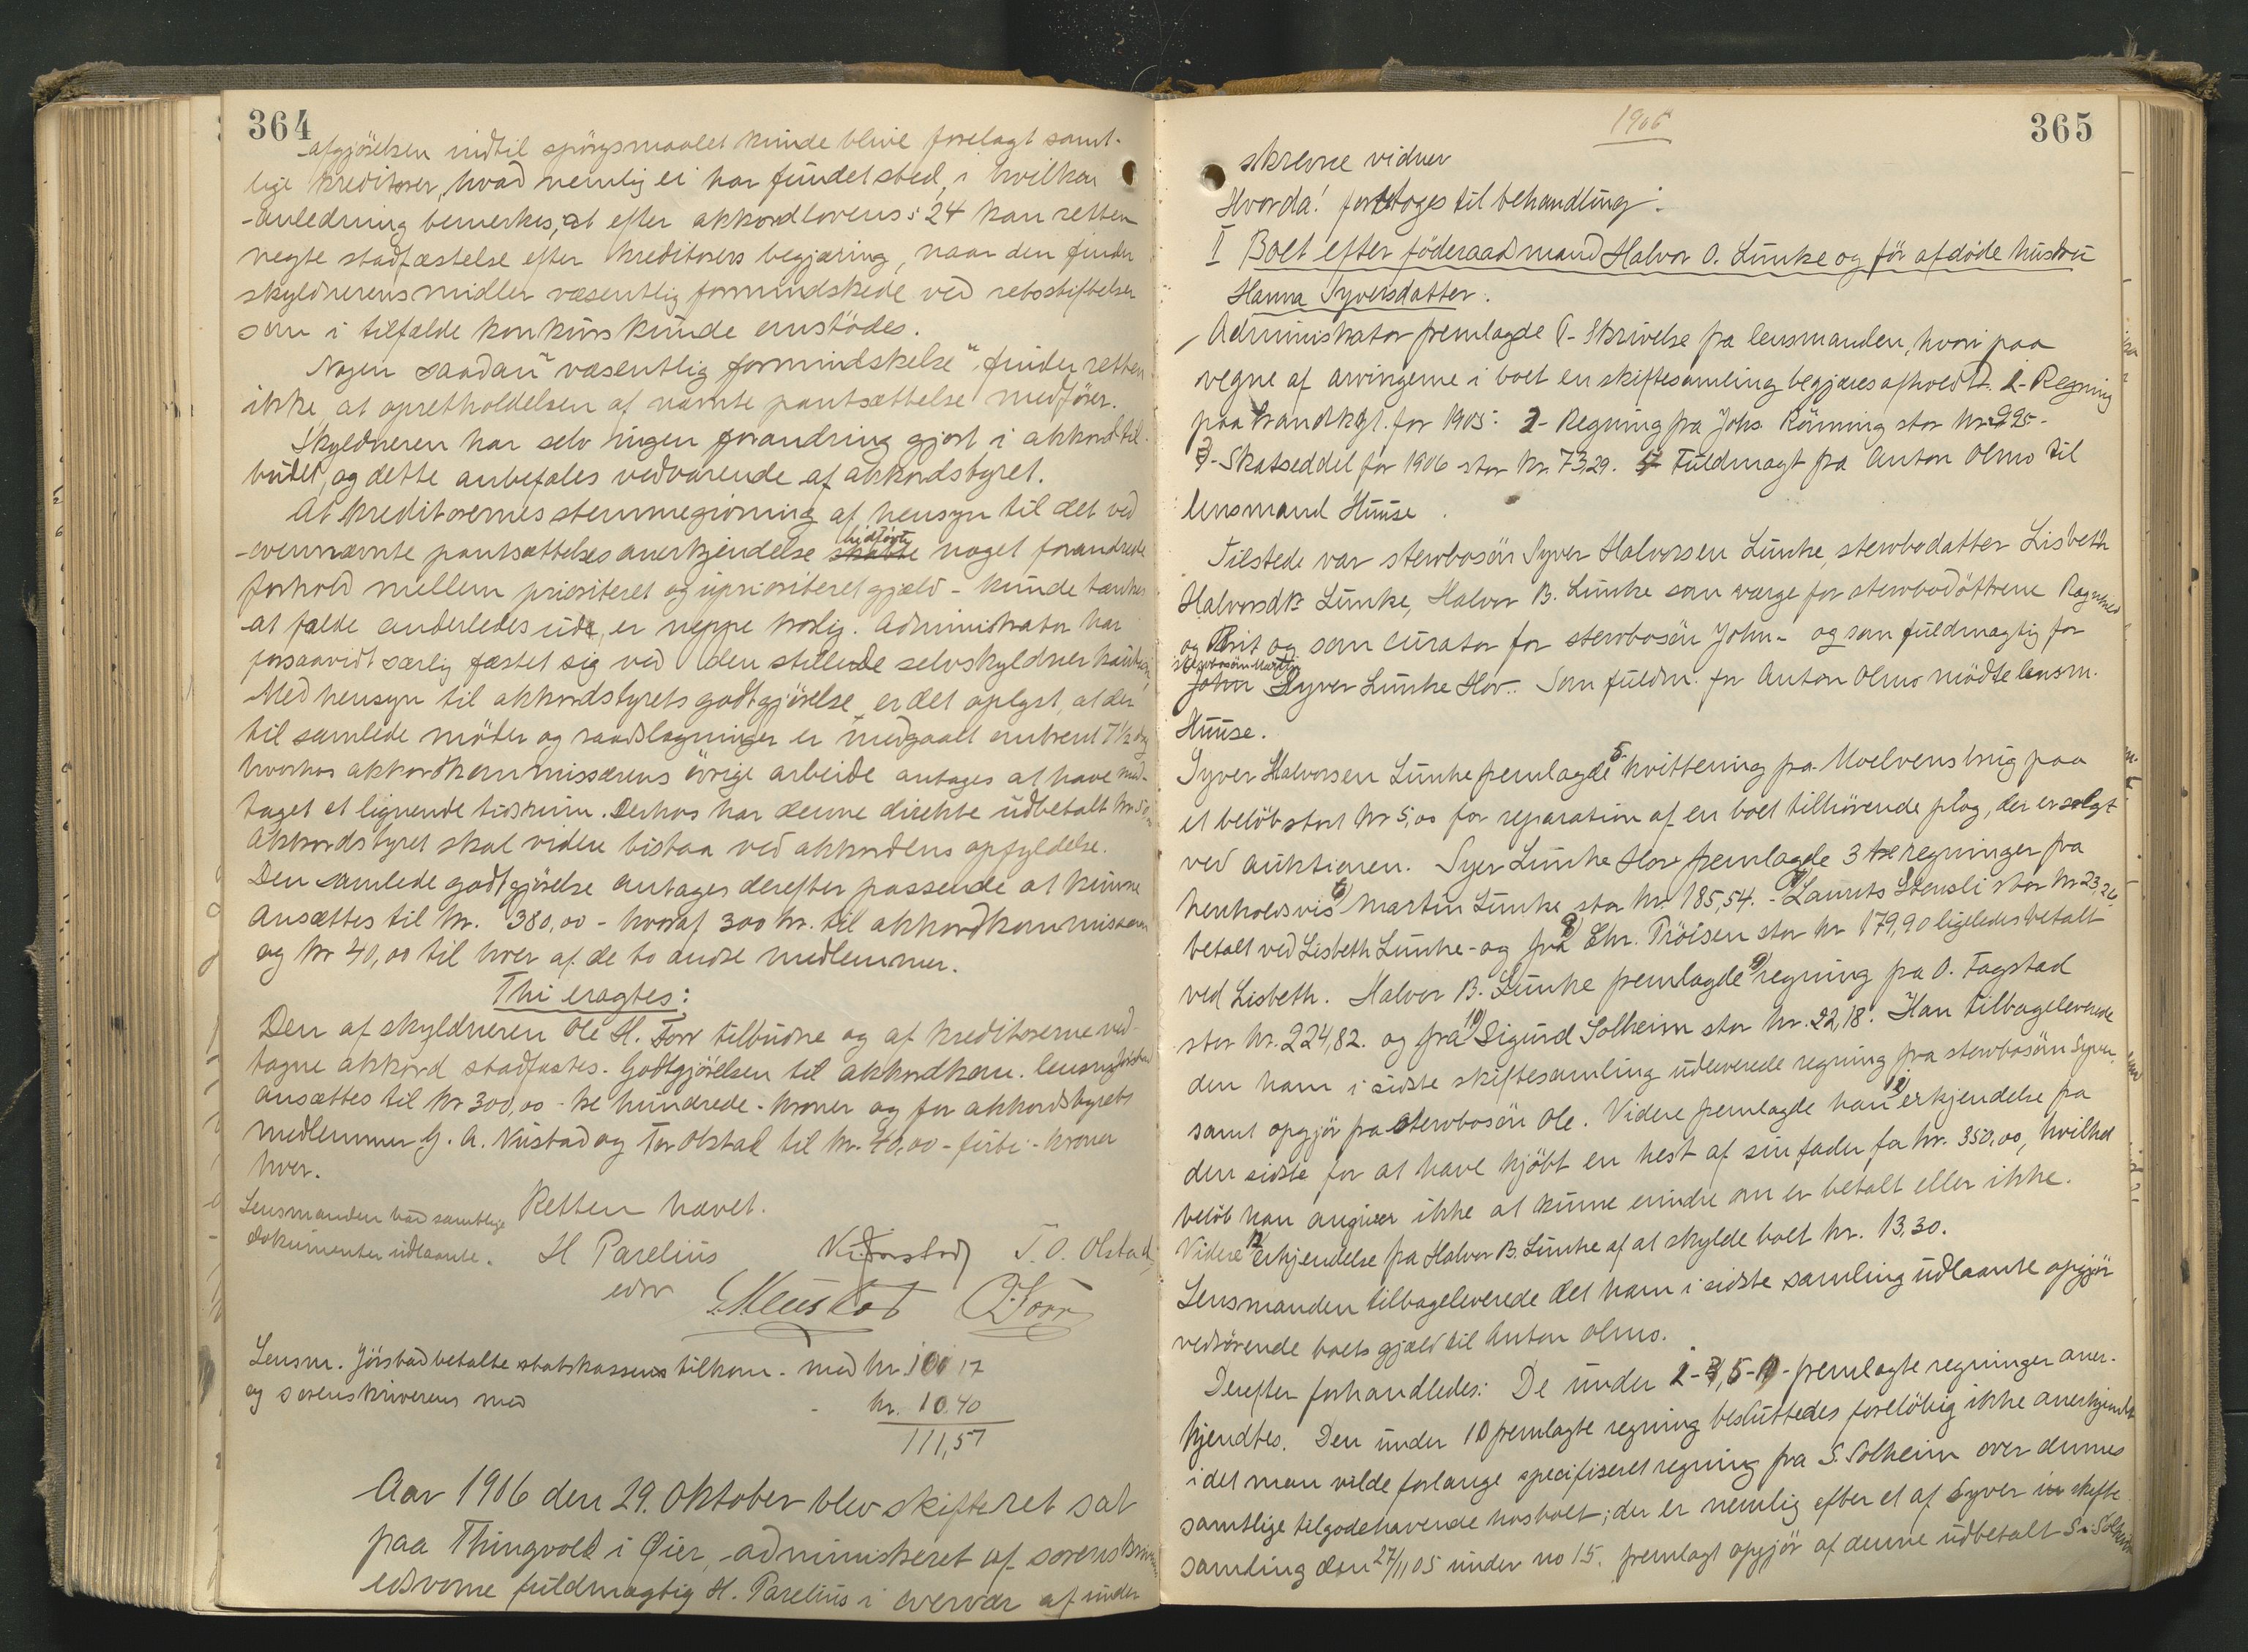 364
afgjörelsen indtil spörgsmaalet kunde blive forelagt samt-
lige kreditorer, hvad nemlig ei har fundet sted, i hvilken
-anledning bemerkes, at efter akkordlovens § 24 kan retten
negte stadfæstelse efter kreditorers begjæring, naar den finder
skyldnerens midler væsentlig formindskede ved retsstiftelser
som i tilfælde konkurs kunde omstödes.
Nogen saadan "væsentlig formindskelse" finder retten
ikke at opretholdelsen af nævnte pantsættelse medförer.
Skyldneren har selv ingen forandring gjort i akkordtil-
budet, og dette anbefales vedvarende af akkordstyret.
At kreditorernes stemmegivning af hensyn til det ved
-ovennævnte pantsættelses anerkjendelse skabte hidförte noget forandrede
forhold mellem prioriteret og uprioriteret gjæld - kunde tænkes
at falde anderledes ud, er neppe trolig. Administrator har
forsaavidt særlig fæstet sig ved den stillede selvskyldner kaution.
Med hensyn til akkordstyrets godtgjörelse er det oplyst, at der
til samlede möter og raadslagninger er medgaaet omtrent 7 1/2 dag
hvorhos akkordkommissærens övrige arbeide antages at have med-
taget et lignende tidsrum. Derhos har denne direkte udbetalt kr. 50
Akkordstyret skal videre bistaa ved akkordens opfyldelse.
Den samlede godtgjörelse antages derefter passende at kunne
ansættes til kr. 380,00 - hvoraf 300 kr. til akkordkommissæren
og kr 40,00 til hver af de to andre medlemmer.
Thi eragtes:
Den af skyldneren Ole H. Torr tilbudne og af kreditorerne ved-
tagne akkord stadfæstes. Godtgjörelsen til akkordkom. lensm. Jörstad
ansættes til kr 300,00 - tre hundrede - kroner og for akkordstyrets
medlemmer G. A. Neustad og Tor Olstad til kr. 40,00 - firti - kroner
hver.
Lensmanden havde samtlige Retten hævet.
dokumenter udlaante. H Parelius T. O. Olstad
edsv
Lensm. Jörstad betalte statskassens tilkom. med kr. 101 17
og sorenskriverens med - kr. 10.40
111,57
Aar 1906 den 29. Oktober blev skifteret sat
paa Thingvold i Øier, administreret af sorenskriverens
edsvorne fuldmægtig H. Parelius i overvær af under
1906
365
skrevne vidner
Hvorda! foretoges til behandling:
I Boet efter föderaadmand Halvor O. Lunke og för afdöde hustru
Hanna Syversdatter.
Administrator fremlagde 1- Skrivelse fra lensmanden, hvori paa
vegne af arvingerne i boet en skiftesamling begjæres afholdt. 2- Regning
paa brandktgt. for 1905: 2- Regning fra Johs. Rönning stor kr 2,95-
3- Skatseddel for 1906 stor kr. 73,29. 4 Fuldmagt fra Anton Olmo til
lensmand Huuse.
Tilstede var stervbosön Syver Halvorsen Lunke, stervbodatter Lisbeth
Halvorsdtr Lunke, Halvor B. Lunke som værge for stervbodöttrene Ragnhild
og Marit og som curator for stervbosön John - og som fuldmægtig for
stervbosön Martin
John Syver Lunke Hov. Som fuldm. for Anton Olmo mödte lensm.
Huuse.
Syver Halvorsen Lunke fremlagde 5 kvittering fra Moelvens brug paa
et belöb stort kr 5,00 for reparation af en boet tilhörende plog, der er solgt
ved auktionen. Syver Lunke Hov fremlagde 3 tre regninger fra
henholdsvis 6) Martin Lunke stor kr. 185,54. - 7) Laurits Stensli stor kr 23,26
betalt ved Lisbeth Lunke - og fra 8) Chr. Pröisen stor kr 179,90 ligeledes betalt
ved Lisbeth. Halvor B. Lunke fremlagde 9) regning fra O. Fagstad
stor kr. 224,82. og fra 10) Sigurd Solheim stor kr. 22,18. Han tilbageleverede
den ham i sidste skiftesamling udleverede regning fra stervbosön Syver,
samt opgjör fra stervbosön Ole. Videre fremlagde han 12) erkjendelse fra
den sidste for at have kjöbt en hest af sin fader for kr. 350,00, hvilket
belöb han angiver ikke at kunne erindre om er betalt eller ikke.
Videre 12 erkjendelse fra Halvor B. Lunke af at skylde boet kr. 13,30.
Lensmanden tilbageleverede det ham i sidste samling udlaante opgjör
vedrörende boets gjæld til Anton Olmo.
Derefter forhandledes: De under 2-3, 5-9- fremlagte regninger aner-
kjendtes. Den under 10 fremlagte regning besluttedes forelöbig ikke anerkjendt
idet man vilde forlange specifiseret regning fra S. Solheim over dennes
samtlige tilgodehavende hos boet; der er nemlig efter et af Syver in skifte
samling den 27/11 05 under no 15. fremlagt opgjör af denne udbetalt S. Solheim